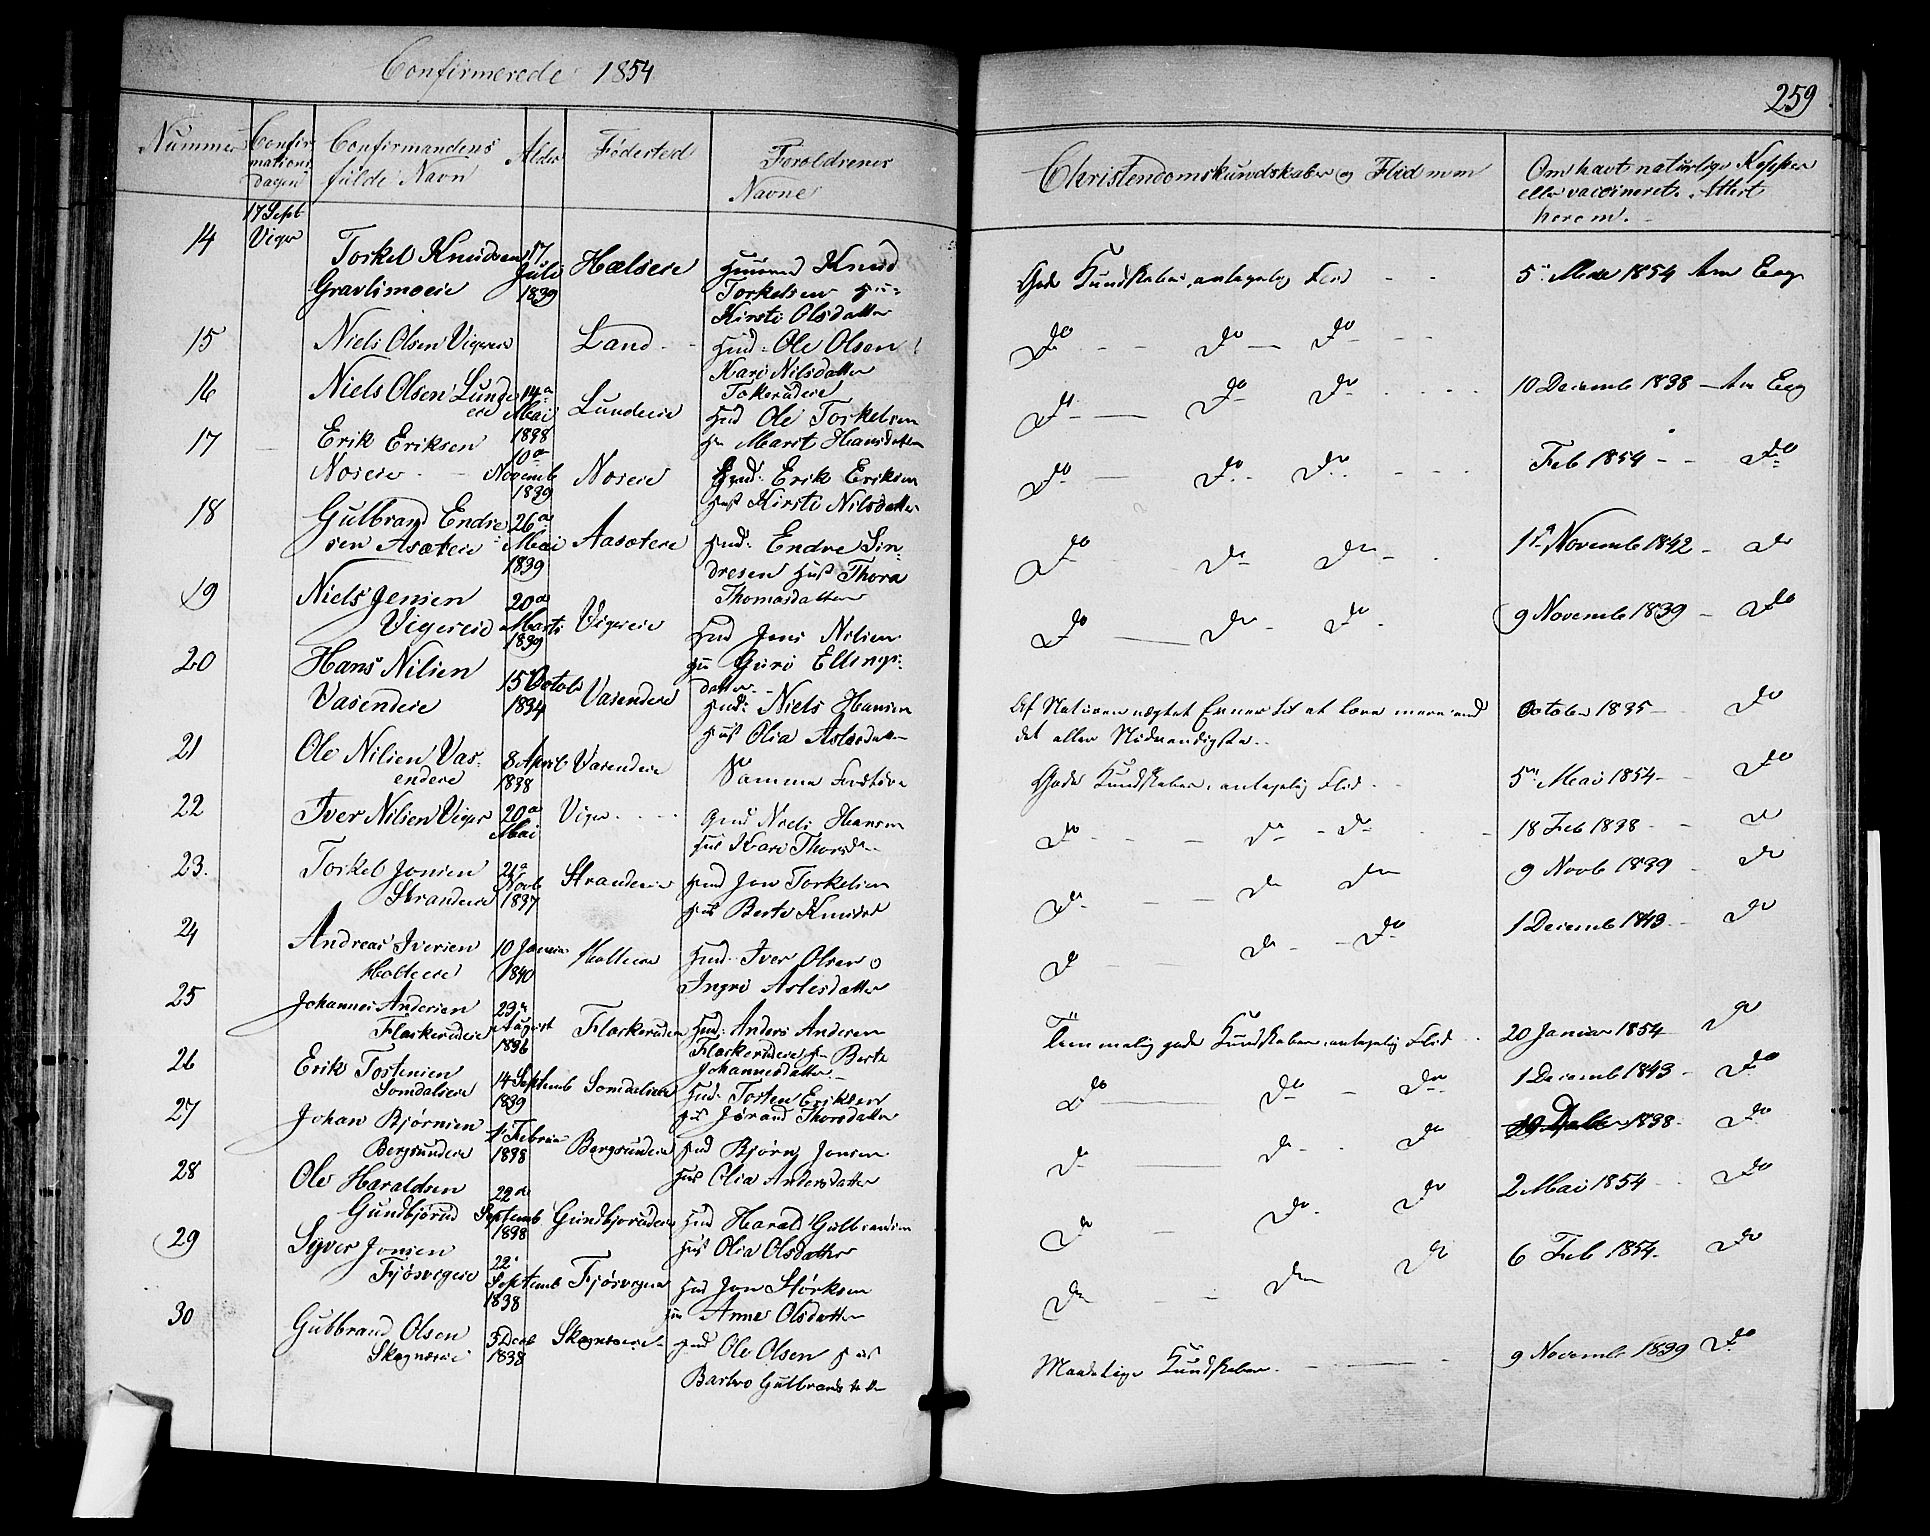 Confirmerede 1854
259
Nummer
Confir
mations
dagen
Confirmandens
fulde Navn
Alder
Fødested
Foroldrenes
Navne
Christendomskundskaber og Flid m m
Om havt naturlige Kopper
eller vaccineret. Attest
herom.
17 Sept
Viger
14
Torkel Knudsen
Gravlimoeie
17
Juli
1839
Hælseie
Knud
Torkelsen
Kirsti Olsdatter
Gode Kundskaber, antagelig Flid
5 Mai 1854 Am Eeg
15
Niels Olsen Vigereie
Land
Hmd. Ole Olsen
Kari Nilsdatter
Tokerudeie
Do Do Do
16
Niels Olsen Lunde
eie
14a
Mai
1838
Lundeeie
Hmd Ole Torkelsen
Marit Hansdatter
Do Do Do
10 Decemb 1838 Am Eeg
17
Erik Eriksen
Noreie
10a
Novemb
1839
Noreie
Erik Eriksen
Kirsti Nilsdatter
Do Do Do
Feb 1854 Do
18
Gulbrand Endre
sen Asæteie
26a
Mai
1839
Aasæteie
Hmd: Endre Sin
dresen Hust Thora
Thomasdatter
Do Do Do
1 Novemb 1842 Do
19
Niels Jensen
Vigereie
20de
Marts
1839
Vigereie
Hmd Jens Nilsen
Guro Ellings
datter
Do Do Do
9 Novemb 1839 Do
20
Hans Nilsen
Vasendeie
15 Octob
1834
Vasendeie
Hmd: Niels Hansen
Hust Olia Aslesdatter
Af Naturen nægtet Evner til at lære mere end
det aller Nødvendigste.
October 1835 Do
21
Ole Nilsen Vas
endeie
8 April
1838
Vasendeie
Samme Forældre
Gode Kundskaber, antagelig Flid
5 Mai 1854 Do
22
Iver Nilsen Viger
20a
Mai
Viger
Niels Hansen
Kari Thorsd
Do Do Do
18 Feb 1838 Do
23.
Torkel Jonsen
Strandeie
21a
Novb
1837
Strandeeie
Hmd Jon Torkelsen
Hust Berte Knudsd
Do Do Do
9 Novb 1839 Do
24
Andreas Iversen
Holteeie
10 Januar
1840
Holteeie
Hmd. Iver Olsen o
Ingri Aslesdatter
Do Do Do
1 Decemb 1843 Do
25
Johannes Andersen
Flaskerudeie
23
August
1836
Flaskeruden
Hmd: Anders Andersen
Flaskerudeie Berte
Johannesdatter
Temmelig gode Kundskaber, antagelig Flid
20 Januar 1854 Do
26
Erik Tostensen
Somdalseie
14 Septemb
1839
Somdalseie
Hmd. Tosten Eriksen
Jørand Thorsdatter
Do Do Do
1 Decemb 1843 Do
27
Johan Bjørnsen
Bergsundeie
1 Februar
1838
Bergsundeie
Hmd Bjørn Jonsen
Hust Olia Andersdatter
Do Do Do
1838 Do
28
Ole Haraldsen
Gundbjørud
22de
Septemb
1838
Gundbjorudeie
Hmd Harald Gulbrandsen
Hust Olia Olsdatter
Do Do Do
2 Mai 1854 Do
29
Syver Jonsen
Fjøsvigeie
22
Septemb
1838
Hmd Jon Størksen
Anne Olsdatter
Do Do Do
6 Feb 1854 Do
30
Gulbrand Olsen
Skognæseie
3 Decb
1838
Skognæseie
Hmd Ole Olsen Hust
Barbro Gulbrandsdatter
Maadelige Kundskaber.
9 Novemb 1839 Do